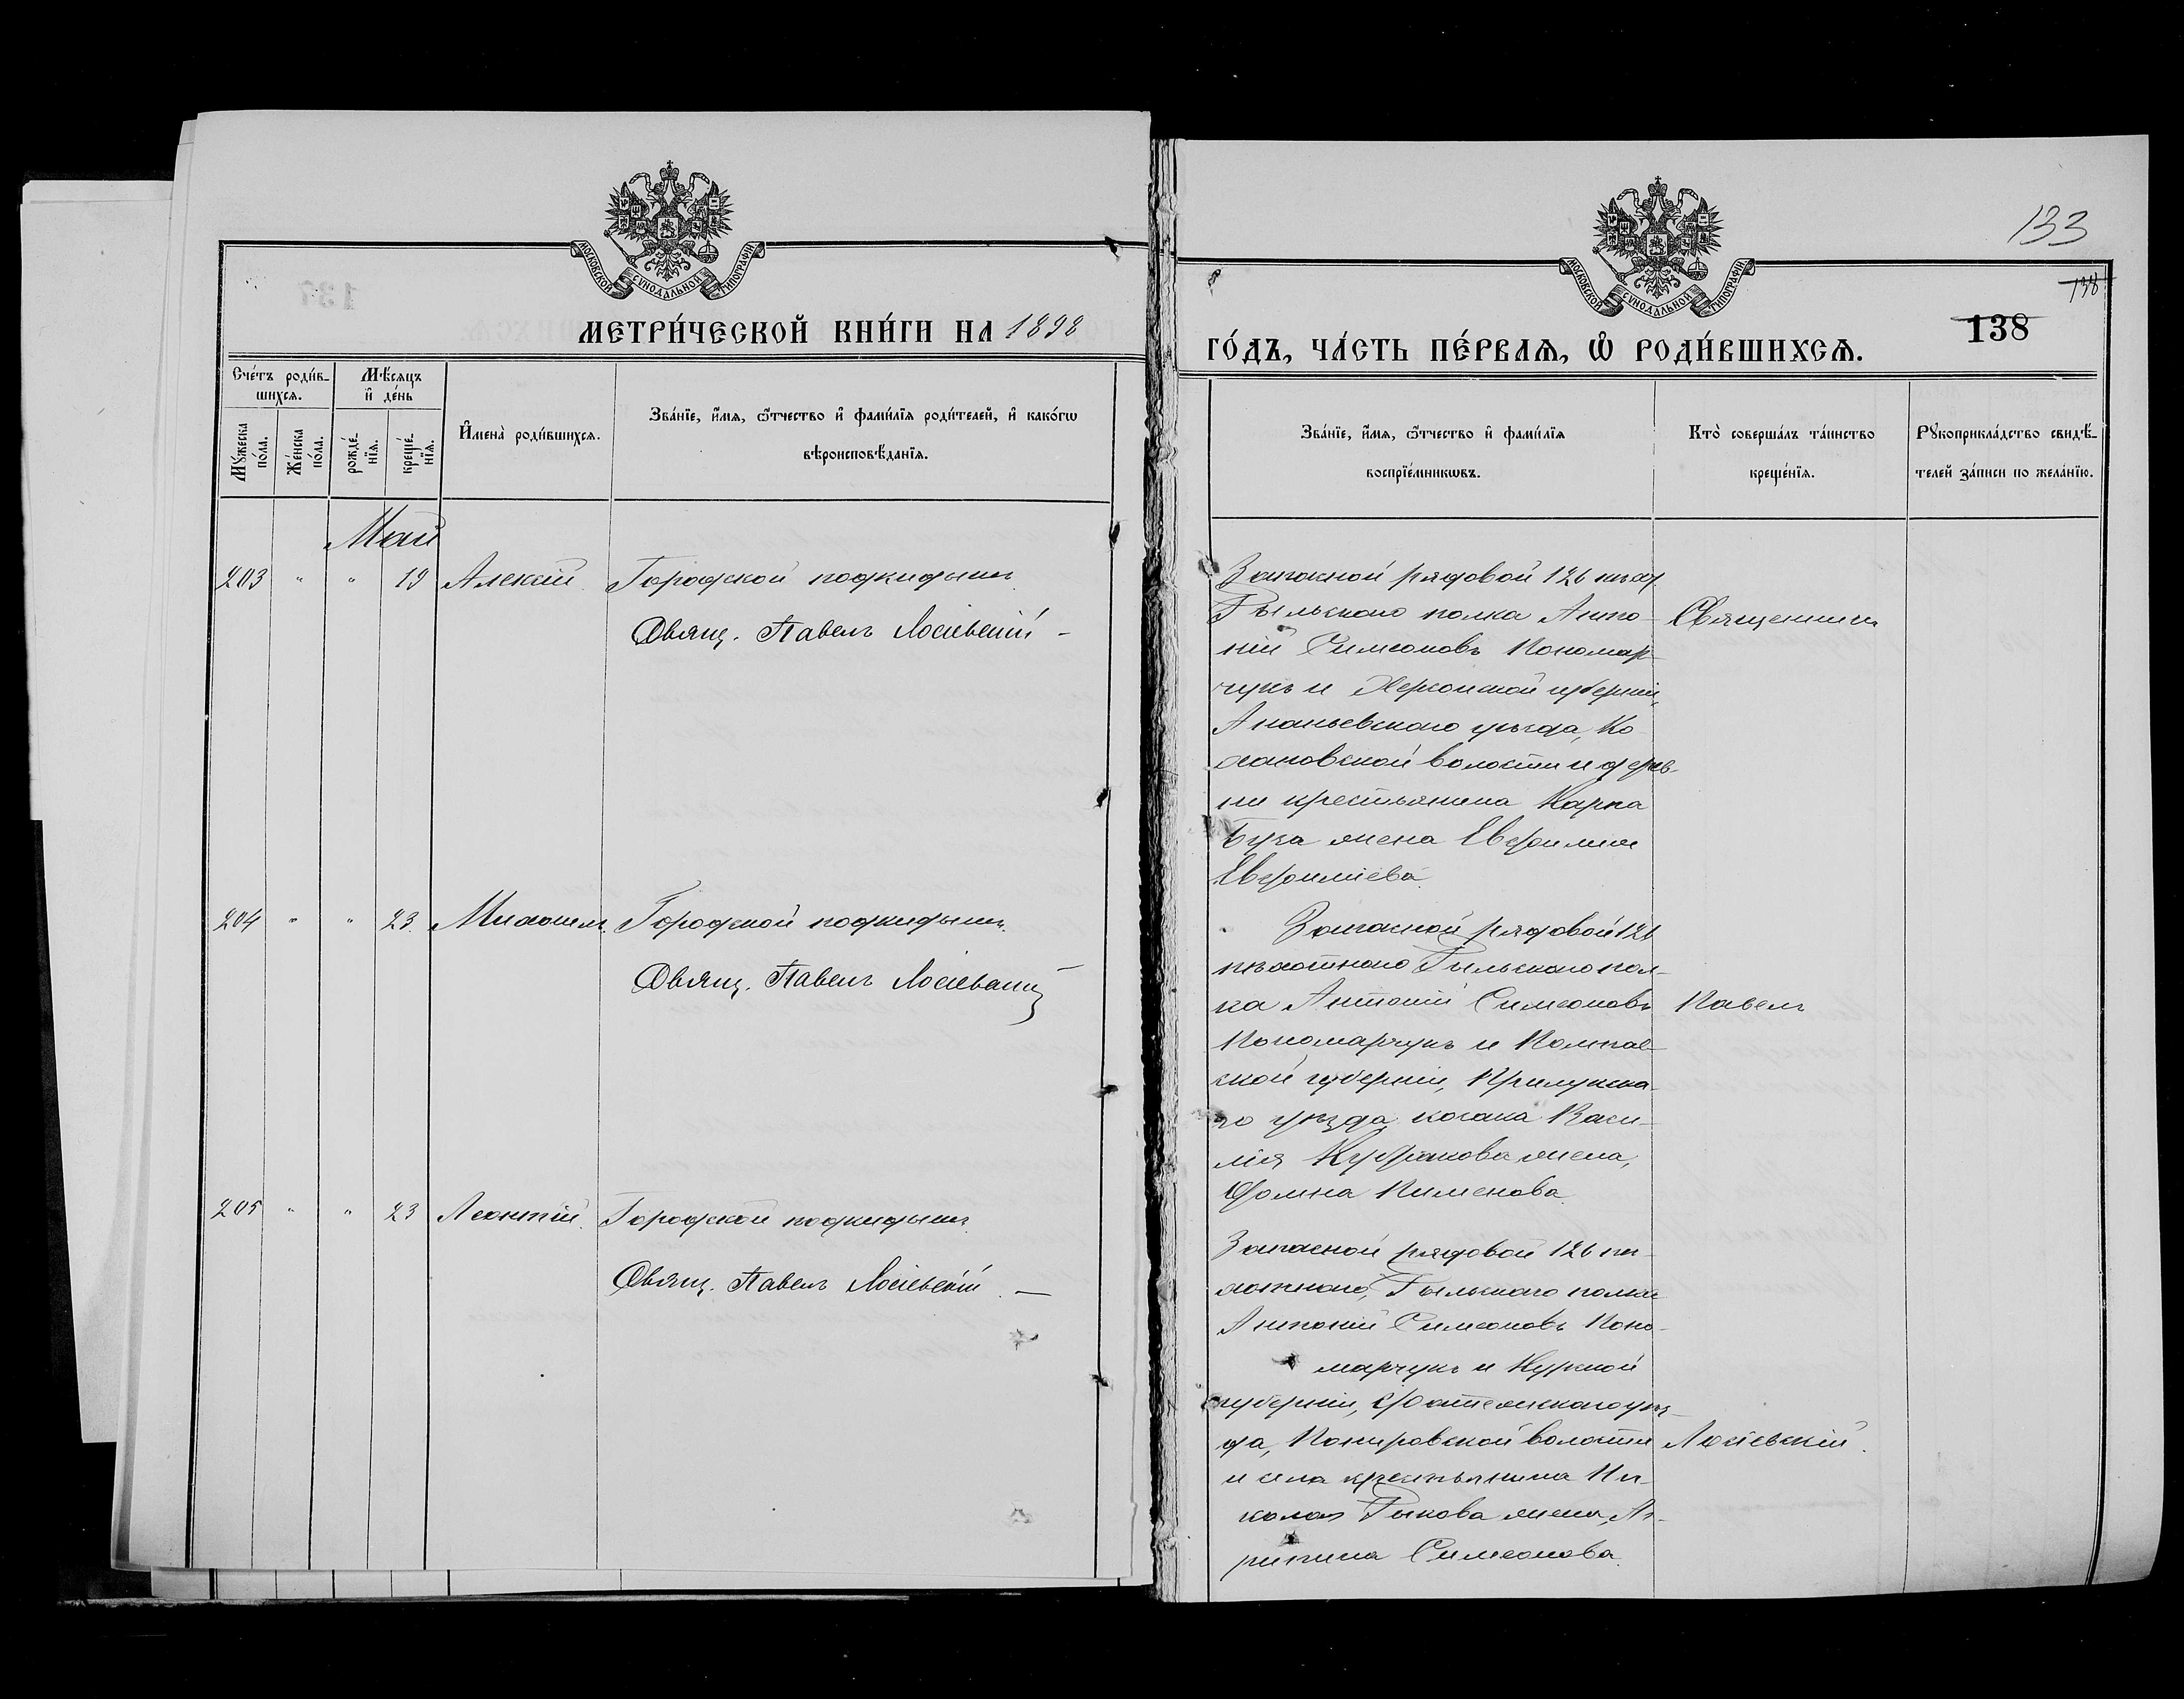 МОСКОВСКОЙ СѴНОДАЛЬНОЙ ТИПОГРАФІИ
МЕТРИ́ЧЕСКОЙ КНИ́ГИ НА 1898
Сче́тъ роди́вшихсѧ.
Мꙋ́жеска по́ла.
Же́нска по́ла.
Мѣ́сѧцъ и҆ де́нь
рожде́нїѧ.
креще́нїѧ.
И҆мена̀ роди́вшихсѧ.
Зва́нїе, и҆́мѧ, ѻ҆́тчество и҆ фами́лїѧ роди́телей, и҆ како́гѡ
вѣроисповѣ́данїѧ.
Май
203 " " 19 Алексій. Городской подкидышъ.
Свящ. Павелъ Лосіевскій –
204 " " 23. Михаилъ. Городской подкидышъ.
Свящ. Павелъ Лосіевскій
205 " " 23 Леонтій. Городской подкидышъ.
Свящ. Павелъ Лосіевскій. —
133
МОСКОВСКОЙ СѴНОДАЛЬНОЙ ТИПОГРАФІИ
138
138
ГО́ДЪ, ЧА́СТЬ ПЕ́РВАѦ, Ѽ РОДИ́ВШИХСѦ.
Зва́нїе, и҆́мѧ, ѻ҆́тчество и҆ фами́лїѧ
воспрїе́мникѡвъ.
Кто̀ соверша́лъ та́инство
креще́нїѧ.
Рꙋкоприкла́дство свидѣ́-
телей за́писи по жела́нїю.
Запасной рядовой 126 пѣхот.
Рыльскаго полка Анто-
ній Симеоновъ Пономар-
чукъ и Херсонской губерніи,
Ананьевскаго уѣзда,
волости и дерев-
ни крестьянина Карпа
жена Евфимія
Евфиміева.
Священникъ
Запасной рядовой 126
пѣхотнаго Рыльскаго пол-
ка Антоній Симеоновъ
Пономарчукъ и Полтав-
ской губерніи, Прилукска-
го уѣзда козака Васи-
лія жена,
Фоминa Пименова.
Павелъ
Запасной рядовой 126 пѣ-
хотнаго, Рыльскаго полка
Антоній Симеоновъ Поно-
марчукъ и Курской
губерніи, Фатежскаго уѣз-
да, Поныровской волости
и села крестьянина Ни-
колая Рыкова жена, Аг-
рипина Симеонова.
Лосіевскій.